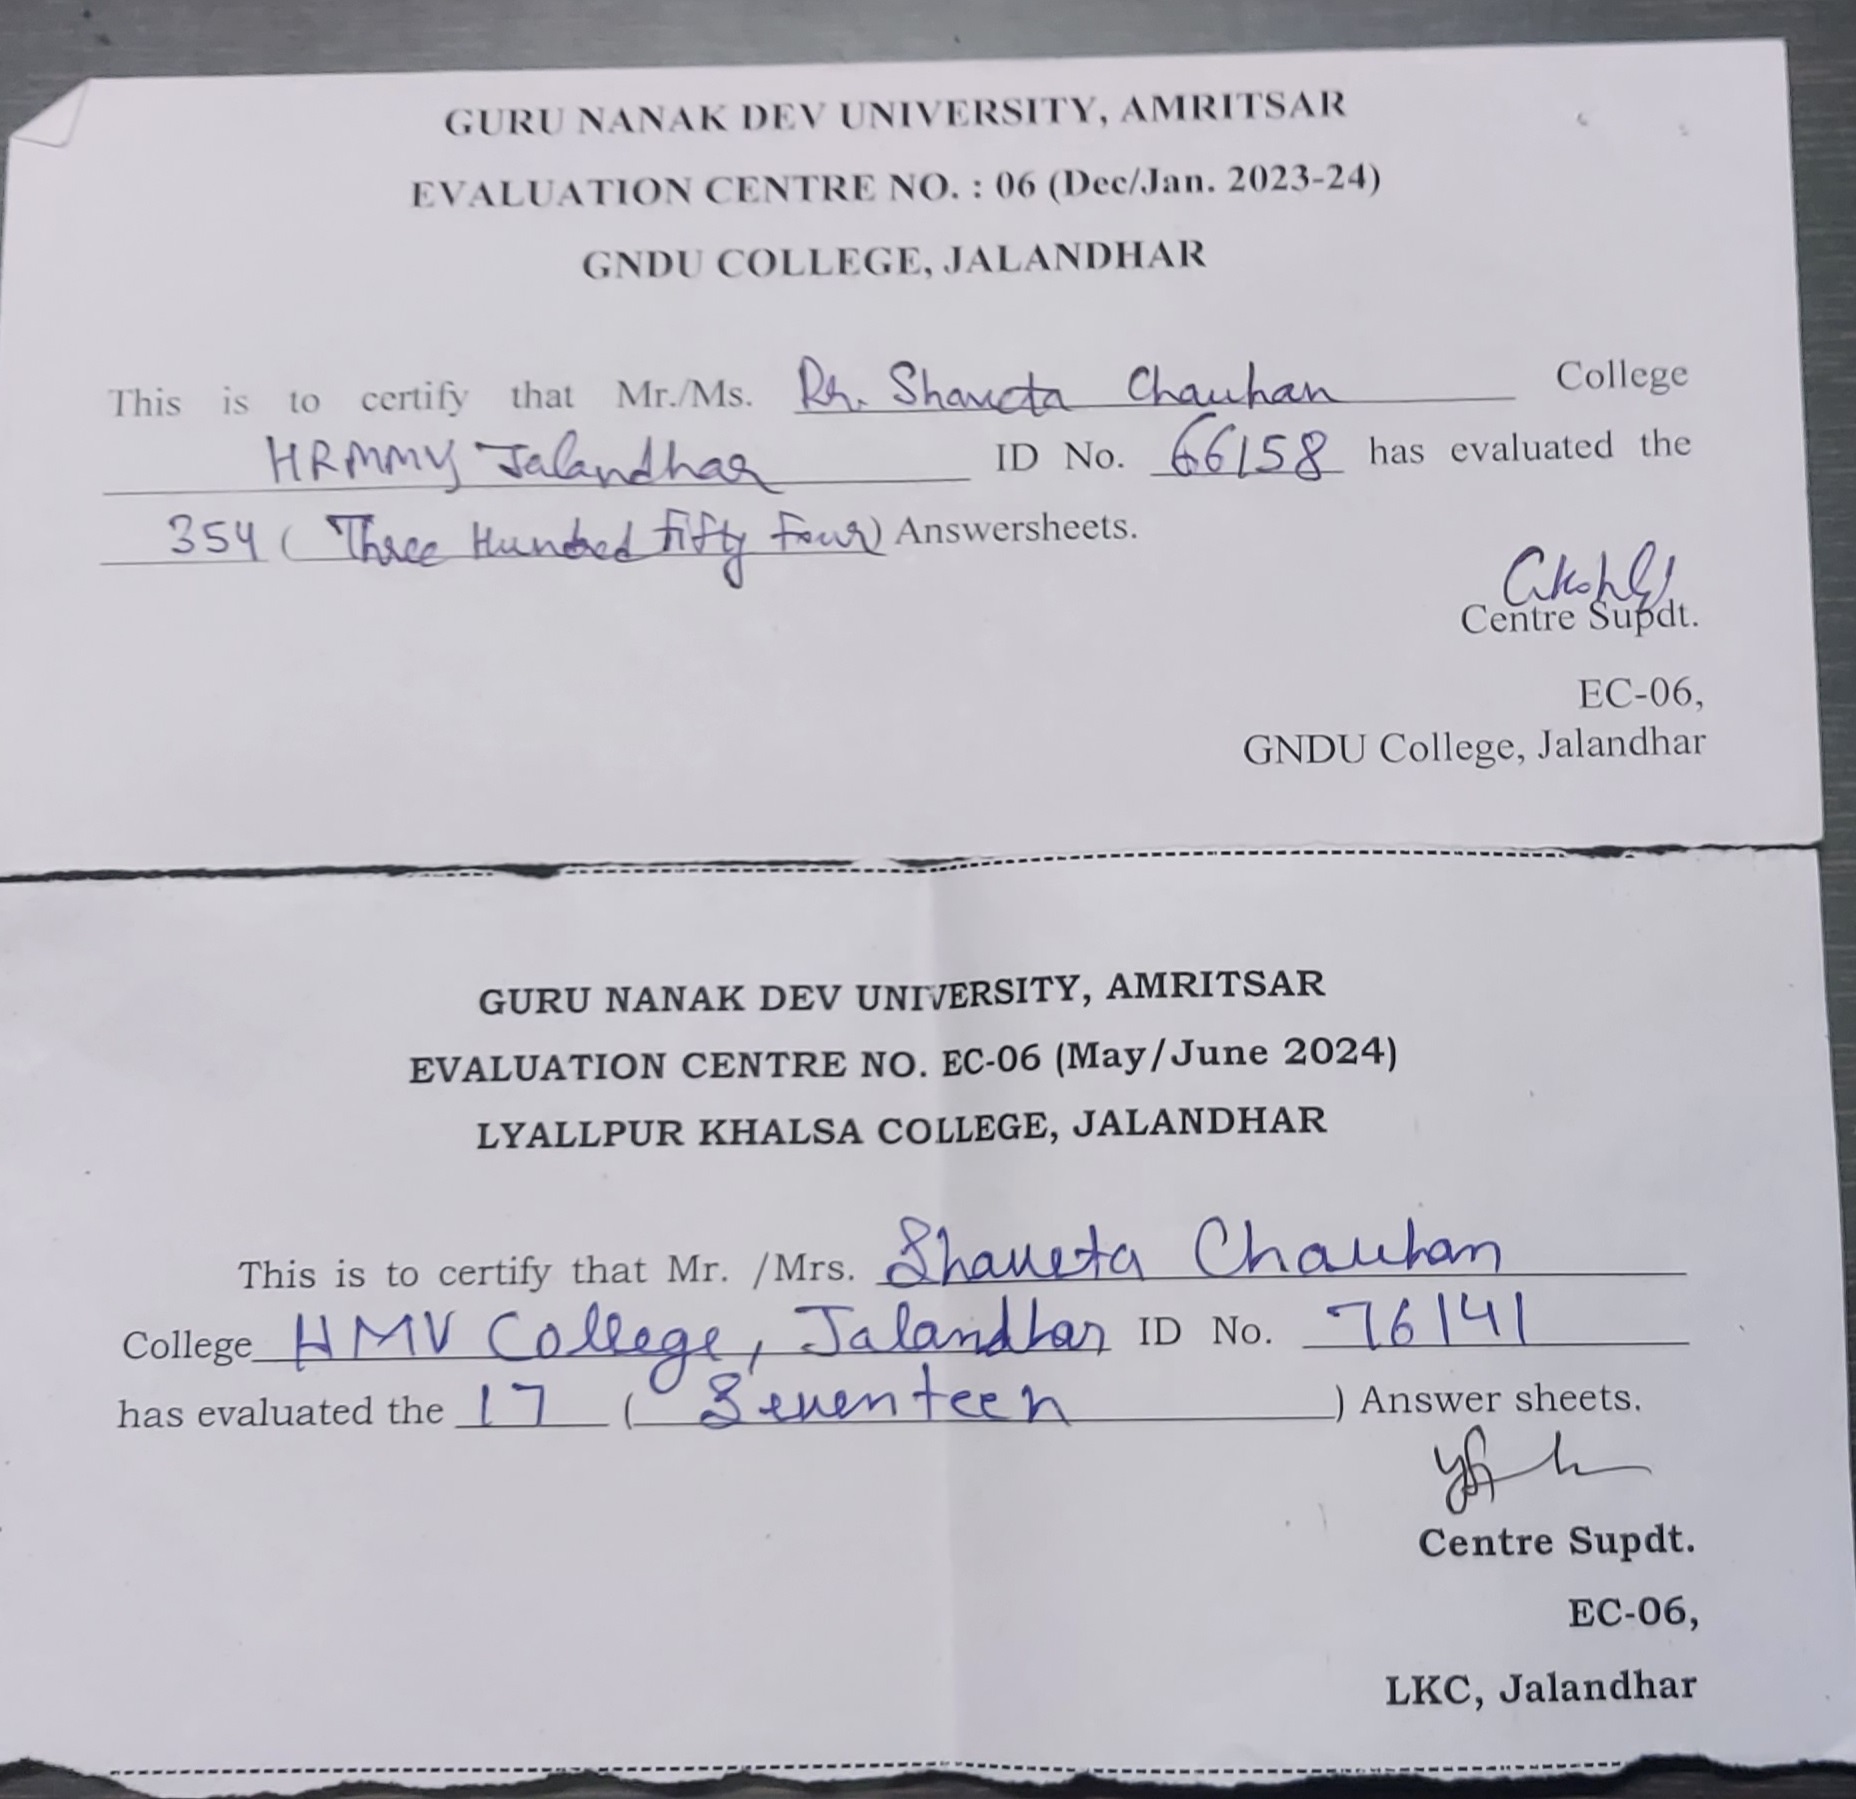 GURU NANAK DEV UNIVERSITY, AMRITSAR
EVALUATION CENTRE NO. : 06 (Dec/Jan. 2023-24)
GNDU COLLEGE, JALANDHAR
This is to certify that Mr./Ms. Dr. Shaveta Chauhan College
HRMMV Jalandhar ID No. 66158 has evaluated the
354 ( Three Hundred Fifty Four) Answersheets.
Centre Supdt.
EC-06,
GNDU College, Jalandhar
GURU NANAK DEV UNIVERSITY, AMRITSAR
EVALUATION CENTRE NO. EC-06 (May/June 2024)
LYALLPUR KHALSA COLLEGE, JALANDHAR
This is to certify that Mr. /Mrs. Shaveta Chauhan
College HMV College, Jalandhar ID No. 76141
has evaluated the 17 ( Seventeen ) Answer sheets.
Centre Supdt.
EC-06,
LKC, Jalandhar